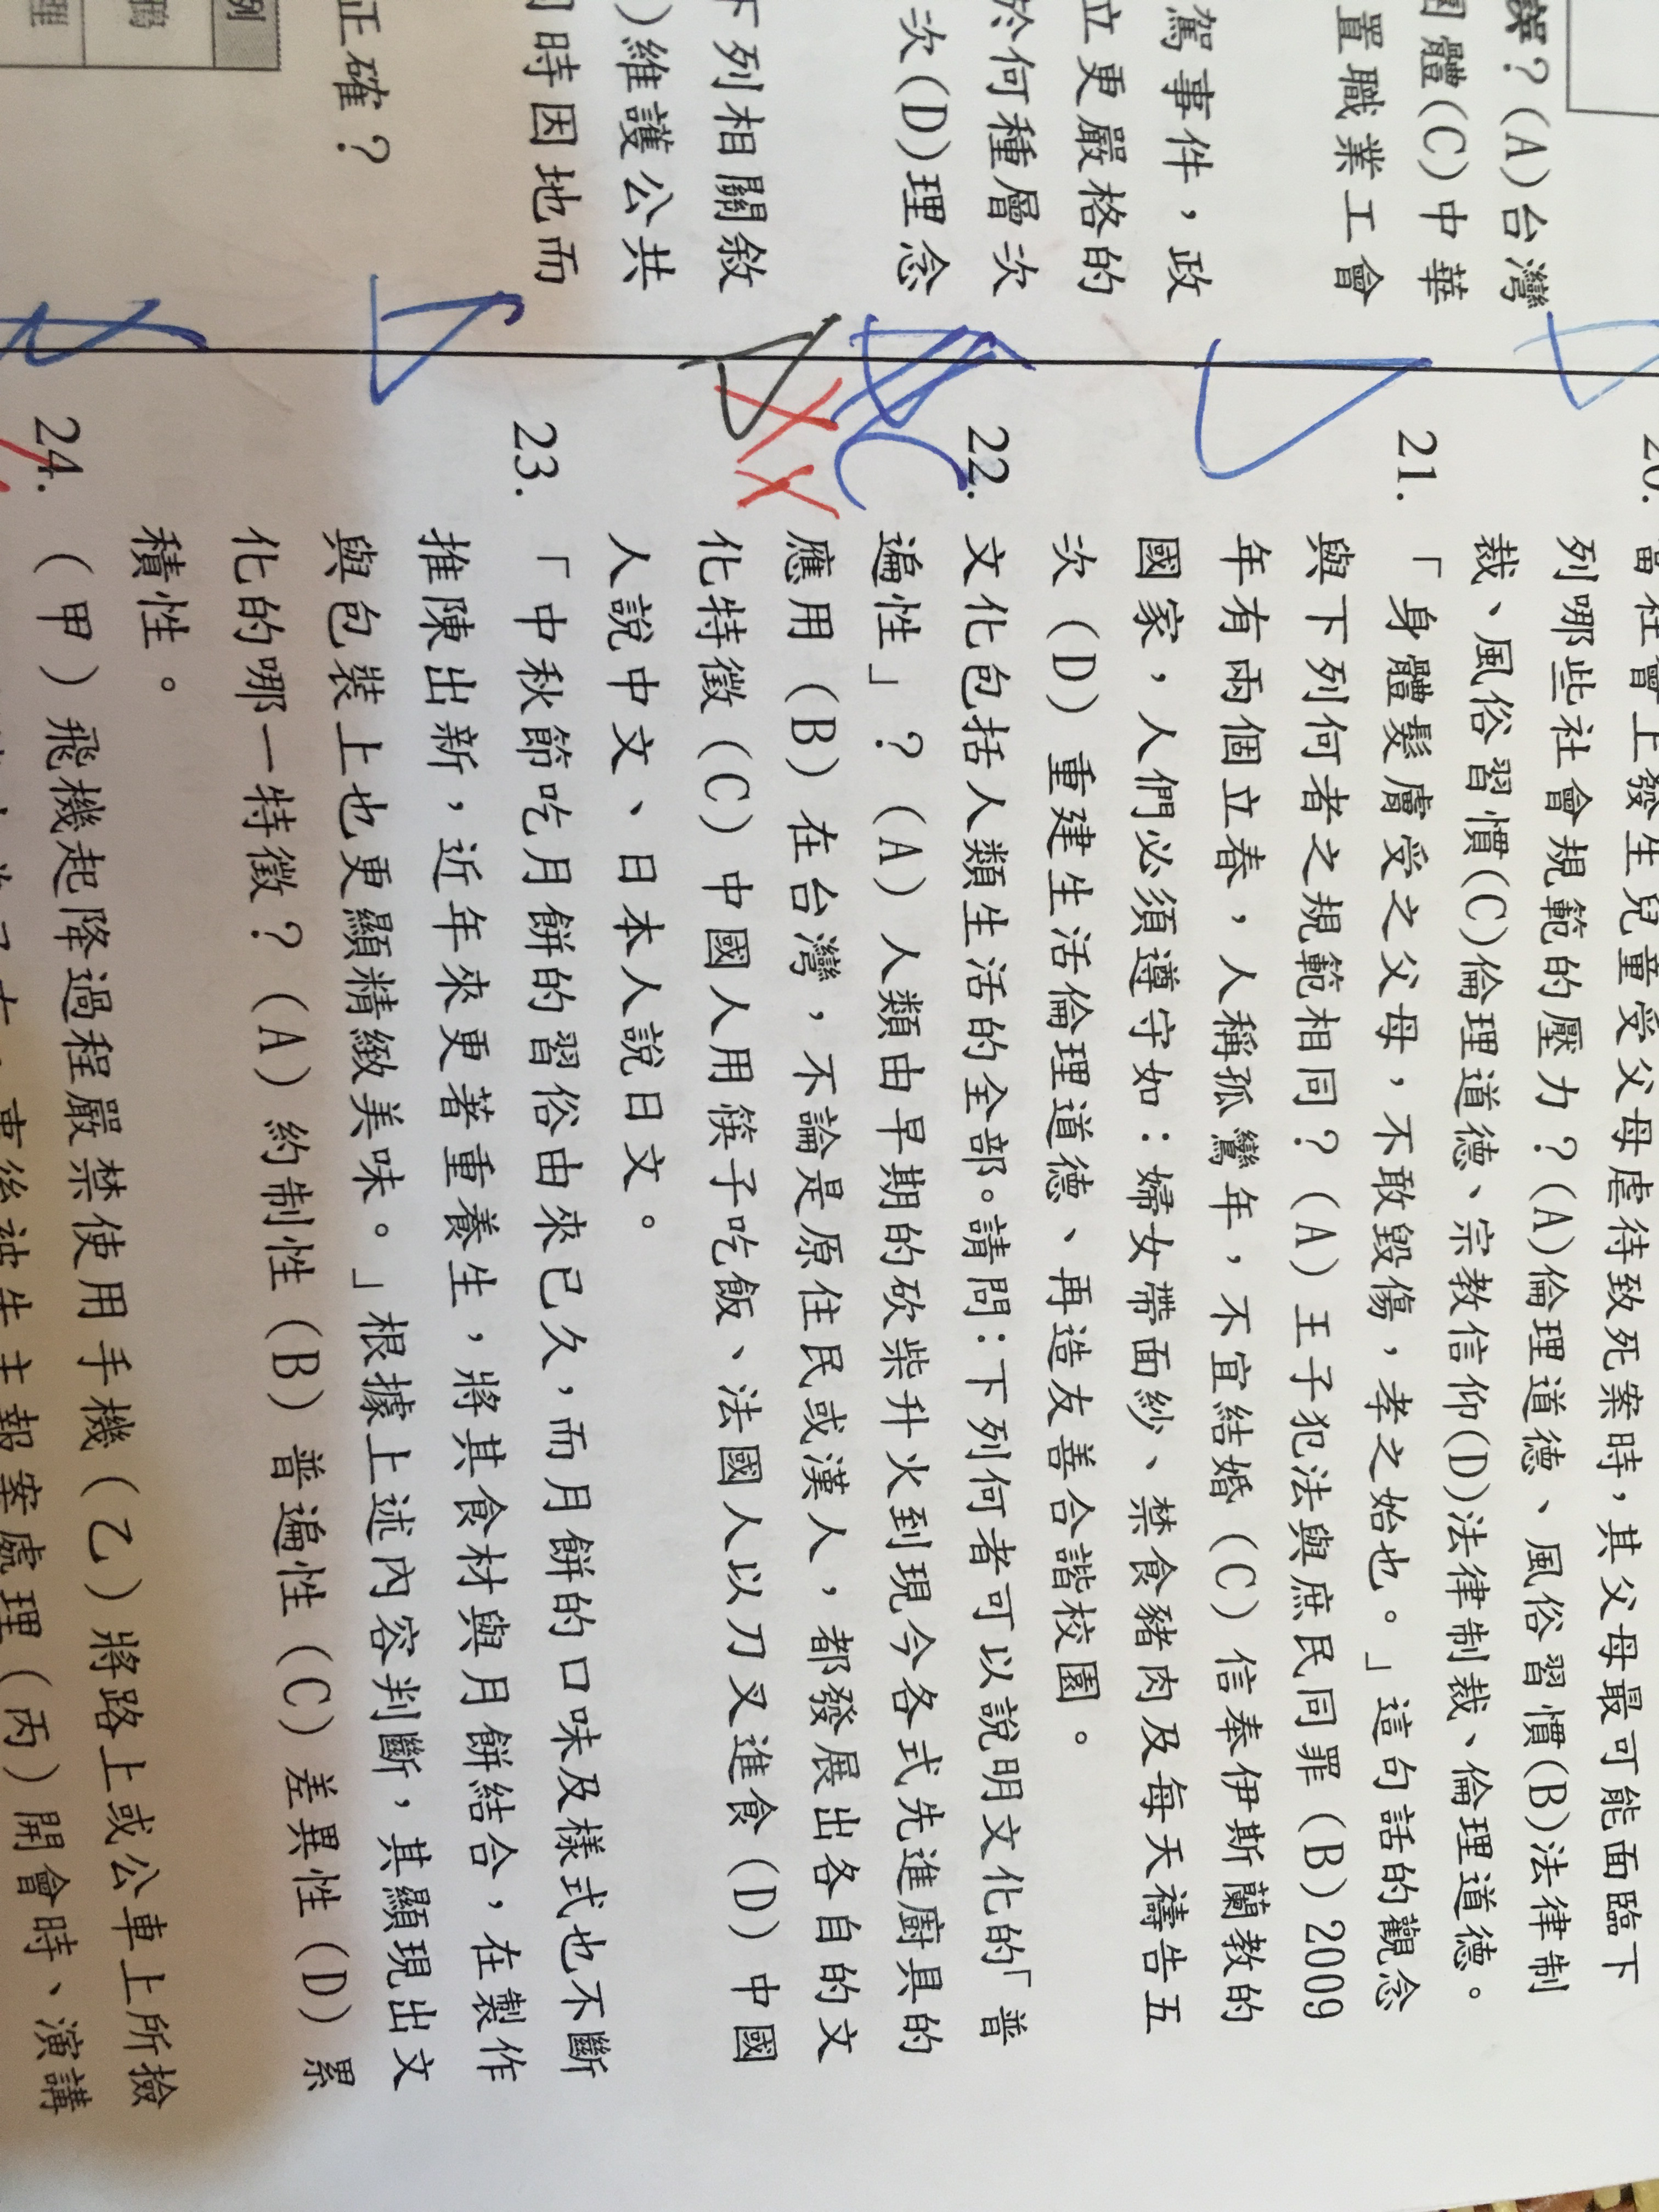 誤？(A)台灣
團體(C)中華
置職業工會
駕事件，政
立更嚴格的
於何種層次
次(D)理念
下列相關敘
)維護公共
時因地而
正確？
例
鵬
理
20. 當社會上發生兒童受父母虐待致死案時，其父母最可能面臨下
列哪些社會規範的壓力？(A)倫理道德、風俗習慣(B)法律制
裁、風俗習慣(C)倫理道德、宗教信仰(D)法律制裁、倫理道德。
21. 「身體髮膚受之父母，不敢毀傷，孝之始也。」這句話的觀念
與下列何者之規範相同？（A）王子犯法與庶民同罪（B）2009
年有兩個立春，人稱孤鸞年，不宜結婚（C）信奉伊斯蘭教的
國家，人們必須遵守如：婦女帶面紗、禁食豬肉及每天禱告五
次（D）重建生活倫理道德、再造友善合諧校園。
22. 文化包括人類生活的全部。請問：下列何者可以說明文化的「普
遍性」？（A）人類由早期的砍柴升火到現今各式先進廚具的
應用（B）在台灣，不論是原住民或漢人，都發展出各自的文
化特徵（C）中國人用筷子吃飯、法國人以刀叉進食（D）中國
人說中文、日本人說日文。
23. 「中秋節吃月餅的習俗由來已久，而月餅的口味及樣式也不斷
推陳出新，近年來更著重養生，將其食材與月餅結合，在製作
與包裝上也更顯精緻美味。」根據上述內容判斷，其顯現出文
化的哪一特徵？（A）約制性（B）普遍性（C）差異性（D）累
積性。
24. （甲）飛機起降過程嚴禁使用手機（乙）將路上或公車上所撿
事後被失主報案處理（丙）開會時、演講